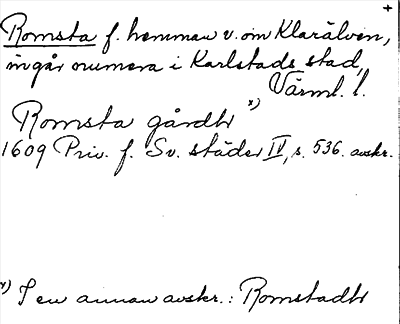 +
Romsta f. hemman v. om Klarälven,
ingår numera i Karlstads stad,
Värml. l.
Romsta gårdtr x)
1609 Priv. f. Sv. städer IV, s. 536. avskr.
x) I en annan avskr.: Romstadtr